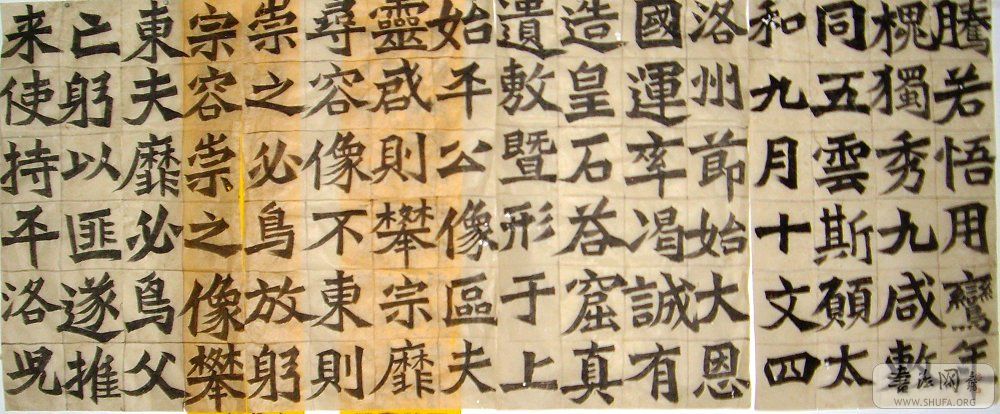 騰若悟用鸞年
槐獨秀九咸敷
同五雲斯願太
和九月十文四
洛州節始大恩
國運率渴誠有
造皇石荅窟真
遺敷暨形于上
始平公像區夫
靈啟則攀宗靡
尋容像不東則
崇之必鳥放躬
宗容崇之像攀
東夫靡必鳥父
亡躬以匪遂推
来使持平洛
WWW.SHUFA.ORG